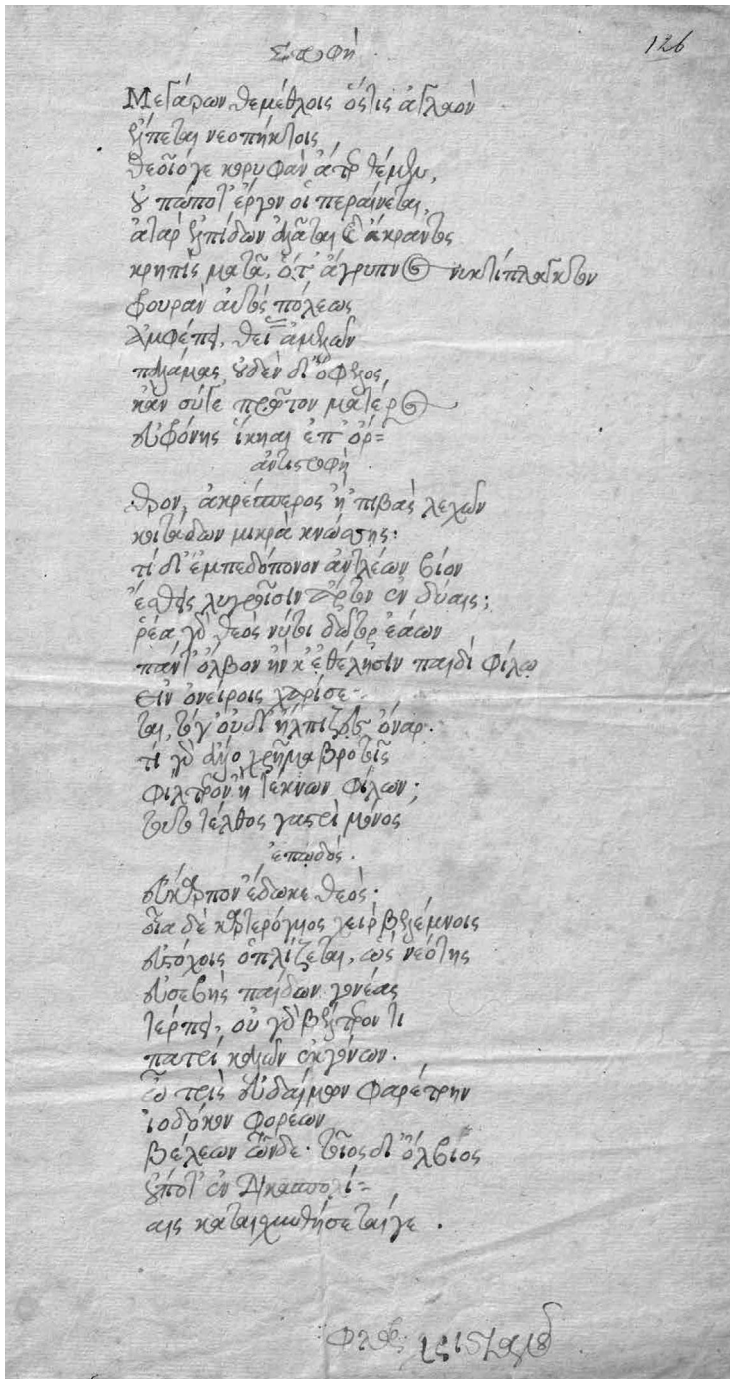 Στροφή 126
Μεγάρων θεμέθλοις ὅστις ἀγλαὸν
ἕλπεται νεοπήκτοις
θεοῖό γε κορυφὰν ἄτερ θέμεν,
οὐ πώποτ' ἔργον οἱ περαίνεται,
ἀτὰρ ἐλπίδων ἀλᾶται ἄκραντος
κρηπὶς ματᾷ, ὅτ' ἄγρυπνος νυκτίπλαγκτον
φρουρὰν αὐτὸς πόλεως
Ἀμφέπει, θεῖ' ἀμελῶν
παλάμας, οὐδὲν δ' ὄφελος,
κἂν σύγε πρῶτον ματέρος
εὐφρόνης ἵκηαι ἐπ' ὄρ=
ἀντιστροφή
θρον, ἀκρέσπερος ἢ 'πιβὰς λεχῶν
κοιτάδων μικρὰ κνώσσῃς·
τί δ' ἐμπεδόπονον ἀντλέων βίον
ἔσθεις λυγροῖσιν ἄρτον ἐν δύαις;
ῥέα γὰρ θεὸς νύ τοι δῶτερ ἐάων
πάντ' ὄλβον ἤν κ' ἐθέλῃσιν παιδὶ φίλῳ
εἰν ὀνείροις χαρίσε-
ται, τό γ' οὐδ' ἤλπιζες ὄναρ.
τί γὰρ ἄλλο χρῆμα βροτοῖς
φίλτρον ἢ τέκνων φίλων;
τοῦτο τέλθος γαστρὶ μόνος
ἐπῳδός.
εὔκαρπον ἔδωκε θεός·
οἷα δὲ καρτερόγυιος χεὶρ βελέμνοις
εὐστόχοις ὁπλίζεται, ὣς νεότης
εὐσεβὴς παίδων γονέας
τέρπει, οὐ γὰρ βέλτερόν τι
πατρὶ καλῶν ἐκγόνων.
ὦ τρὶς εὐδαίμων φαρέτρην
ἰοδόκον φορέων
βελέων τῶνδε· τοῖος δ' ὄλβιος
οὔποτ' ἐν δικασπολί=
αις καταισχυνθήσεταί γε.